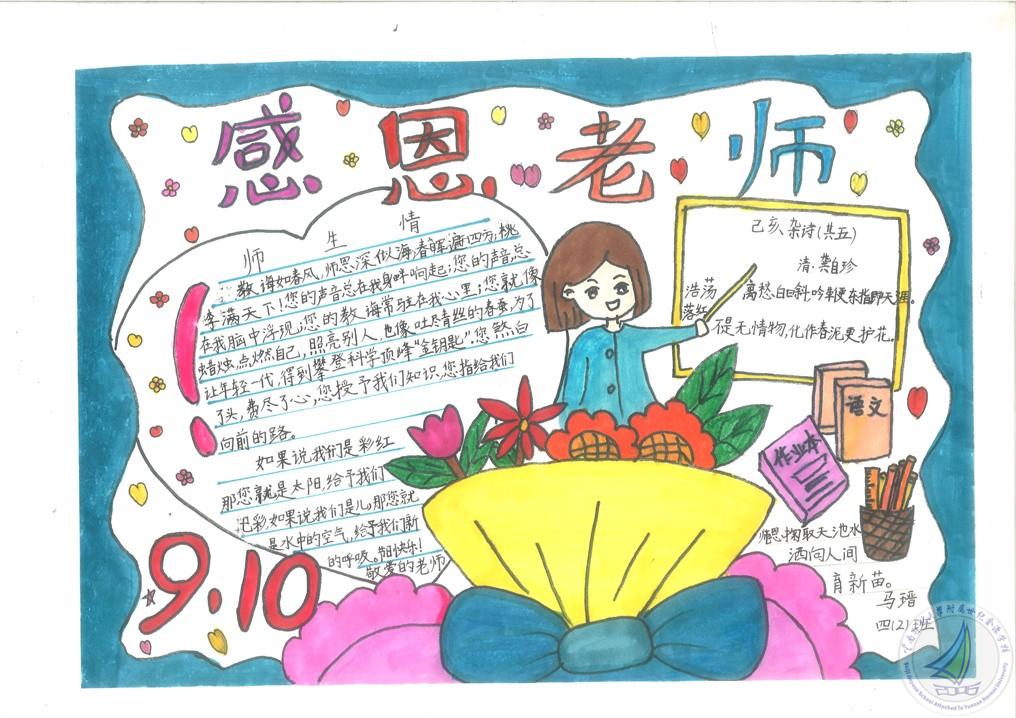 感恩老师
师生情
教诲如春风,师恩深似海,春晖遍四方,桃
李满天下!您的声音总在我身畔响起;您的声音总
在我脑中浮现;您的教诲常驻在我心里;您就像
蜡烛,点燃自己,照亮别人,也像吐尽青丝的春蚕,为了
让年轻一代,得到攀登科学顶峰“金钥匙”.您煞白
了头,费尽了心,您授予我们知识,您指给我们
向前的路。
如果说我们是彩红
那您就是太阳,给予我们
七彩,如果说我们是儿,那您就
是水中的空气,给予我们新
的呼吸。节日快乐!
敬爱的老师
9.10
己亥、杂诗(其五)
清:龚自珍
浩荡离愁白日斜,吟鞭东指即天涯。
落红不是无情物,化作春泥更护花。
语文
作业本
师恩:掬取天池水
洒向人间
育新苗。
马瑨
四(2)班
Yuanqu School Attached To Yunnan Normal University